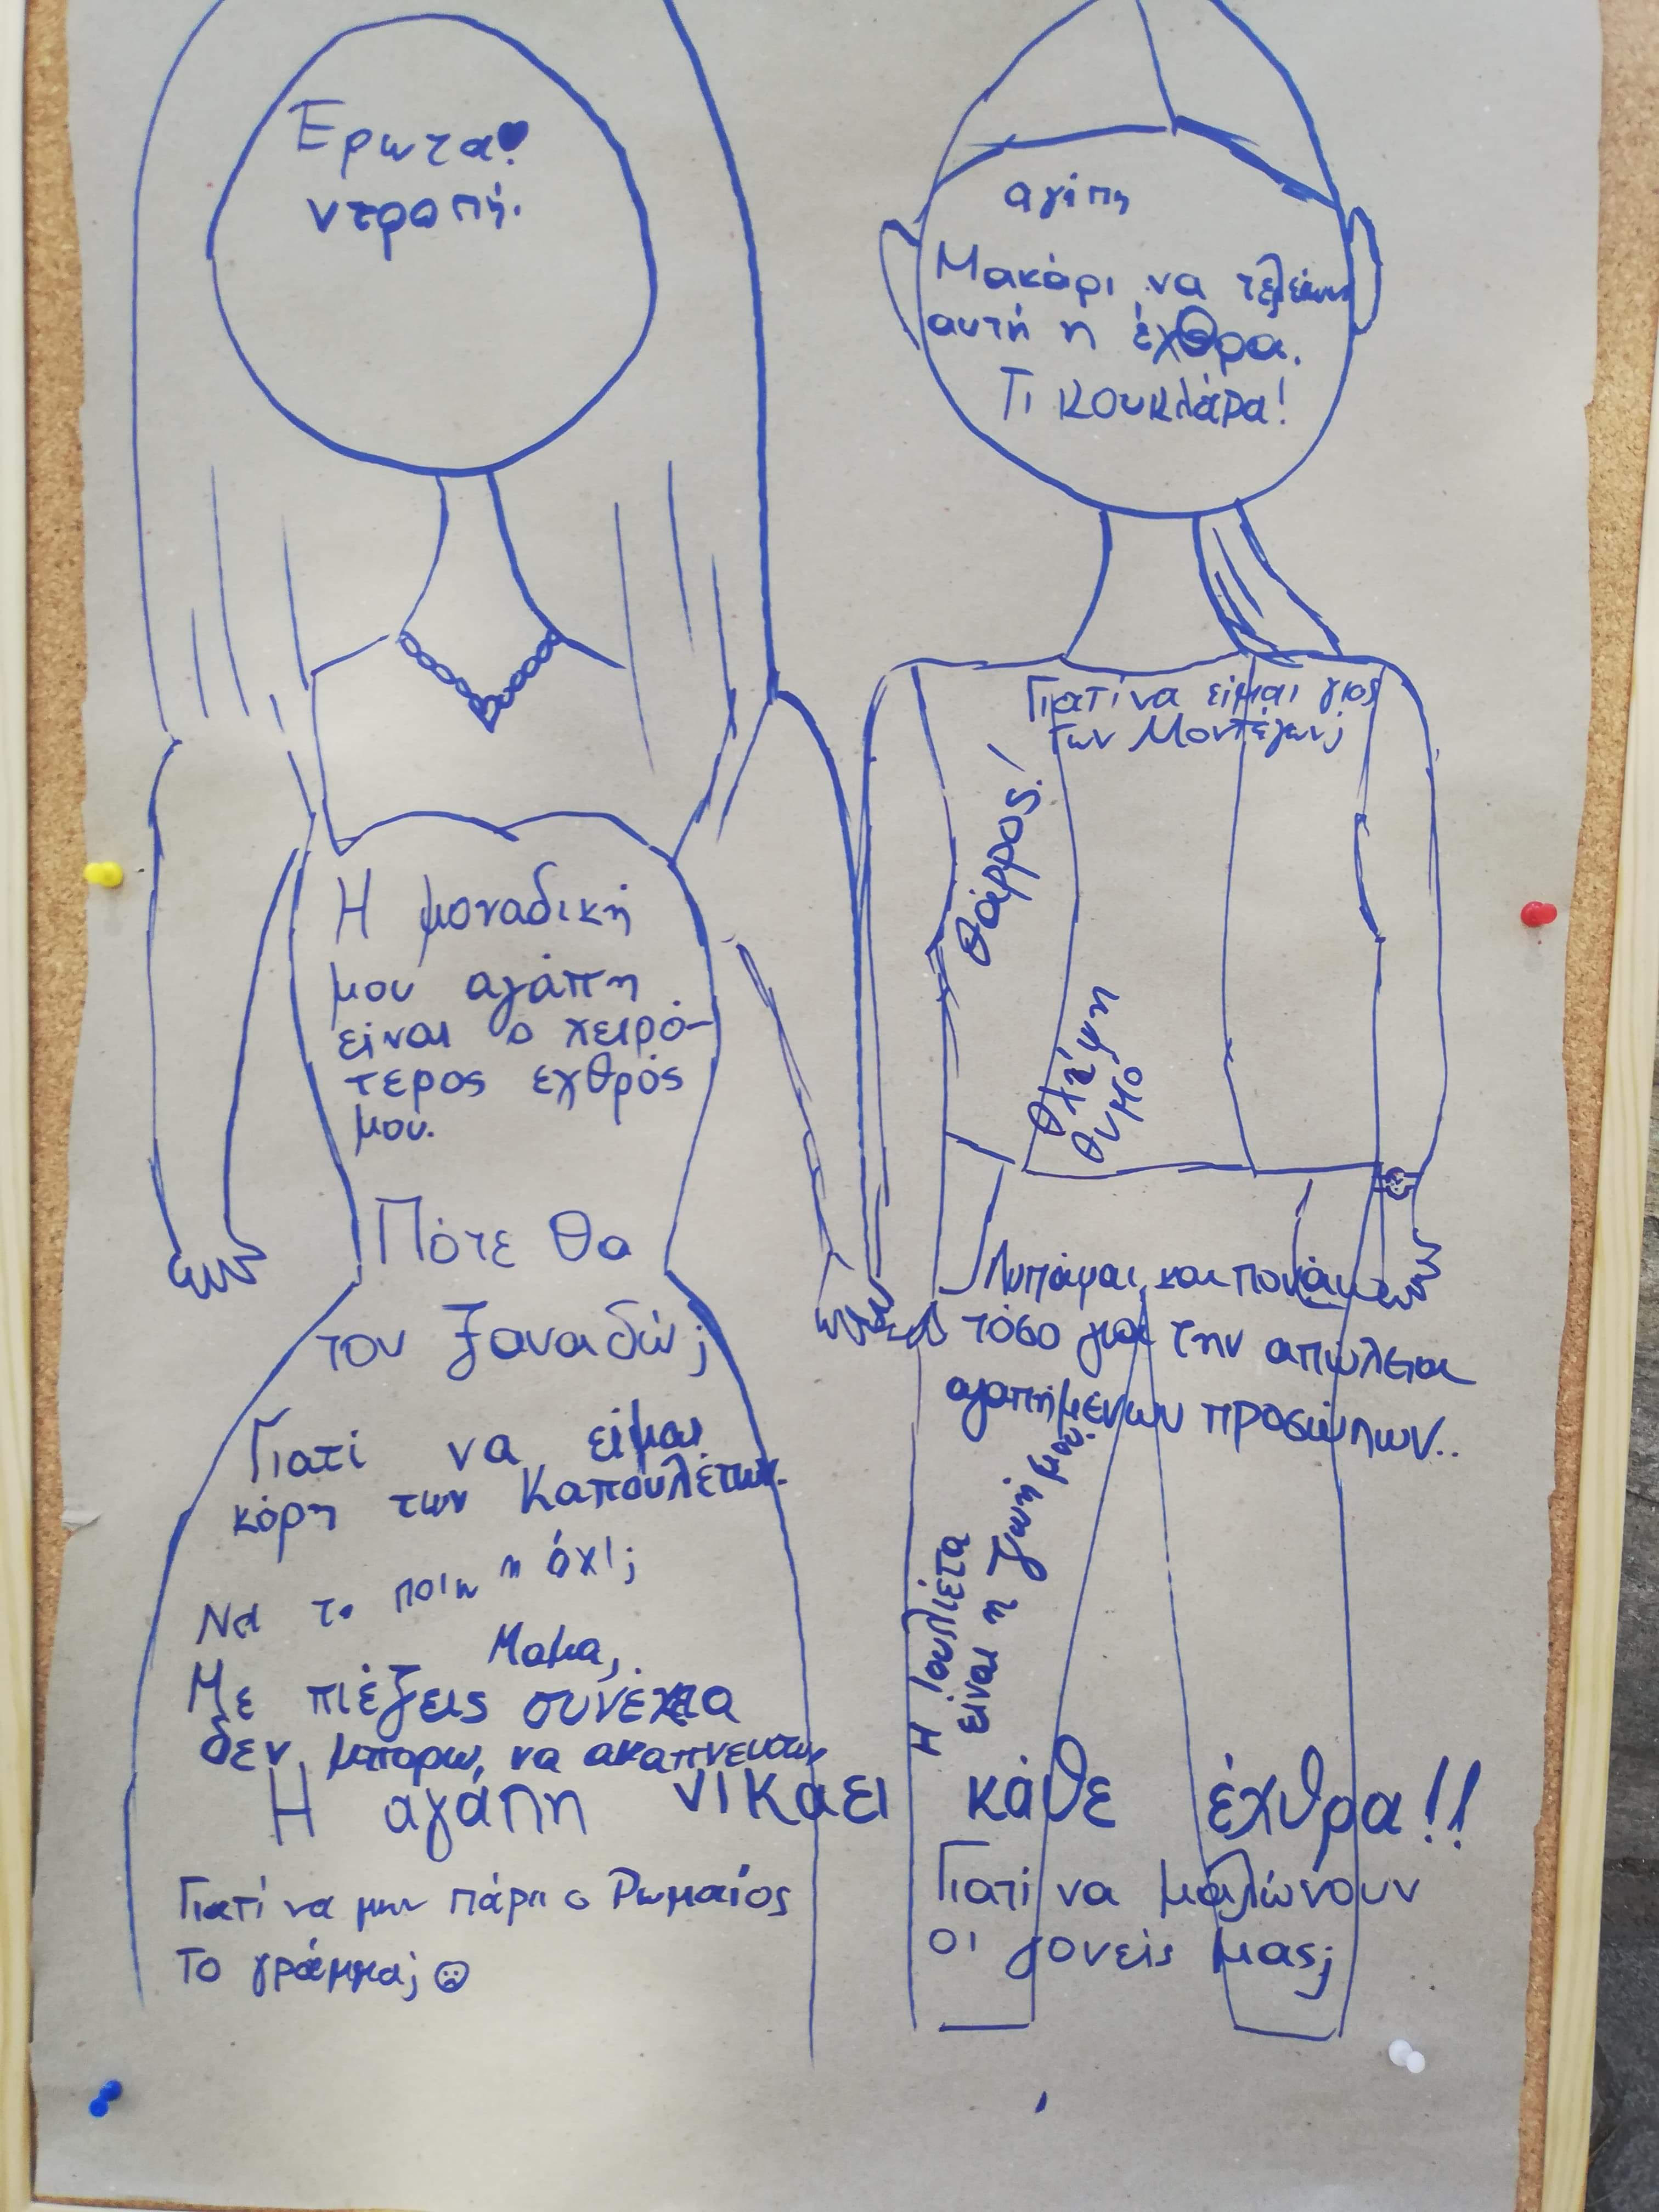 Ερωτα!
ντροπή.
αγάπη
Μακάρι να τελειώσει
αυτή η έχθρα.
Τι κουκλάρα!
Γιατί να είμαι γιος
των Μοντέγων;
Θάρρος!
Θλίψη
θυμο
Η μοναδική
μου αγάπη
είναι ο χειρό-
τερος εχθρός
μου.
Πότε θα
τον ξαναδώ;
Γιατί να είμαι
κόρη των Καπουλέτων.
Να το ποιω η όχι;
Μαμα,
Με πιέζεις συνέχεια
δεν μπορω, να ακαπνευσω
Λυπάμαι και πονάω
τόσο για την απώλεια
αγαπημένων προσώπων..
Η Ιουλιέτα
είναι η ζωή μου.
Η αγάπη νικαει κάθε έχθρα!!
Γιατί να μην πάρει ο Ρωμαίος
το γράμμα;
Γιατί να μαλώνουν
οι γονείς μας;